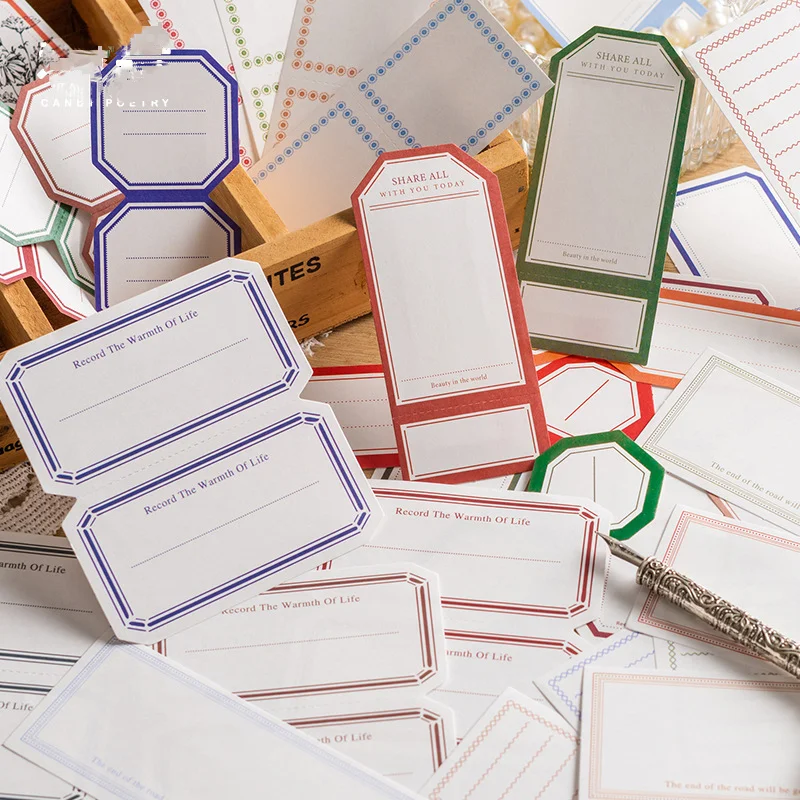 CANDY POETRY
SHARE ALL
WITH YOU TODAY
Beauty in the world
SHARE ALL
WITH YOU TODAY
Beauty in the world
Record The Warmth Of Life
Record The Warmth Of Life
Record The Warmth Of Life
Record The Warmth Of Life
armth Of Life
arm Of Life
The end of the road will
The end of the road
The end of the road will be